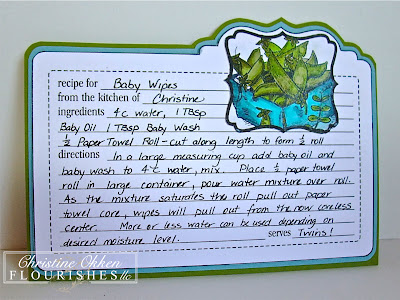 recipe for Baby Wipes
from the kitchen of Christine
ingredients 4 c water, 1 TBsp
Baby Oil 1 TBsp Baby Wash
½ Paper Towel Roll - cut along length to form ½ roll
directions In a large measuring cup add baby oil and
baby wash to 4 c water, mix. Place ½ paper towel
roll in large container, pour water mixture over roll.
As the mixture saturates the roll pull out paper
towel core, wipes will pull out from the now coreless
center. More or less water can be used depending on
desired moisture level. serves Twins!
Christine Okken
FLOURISHES llc